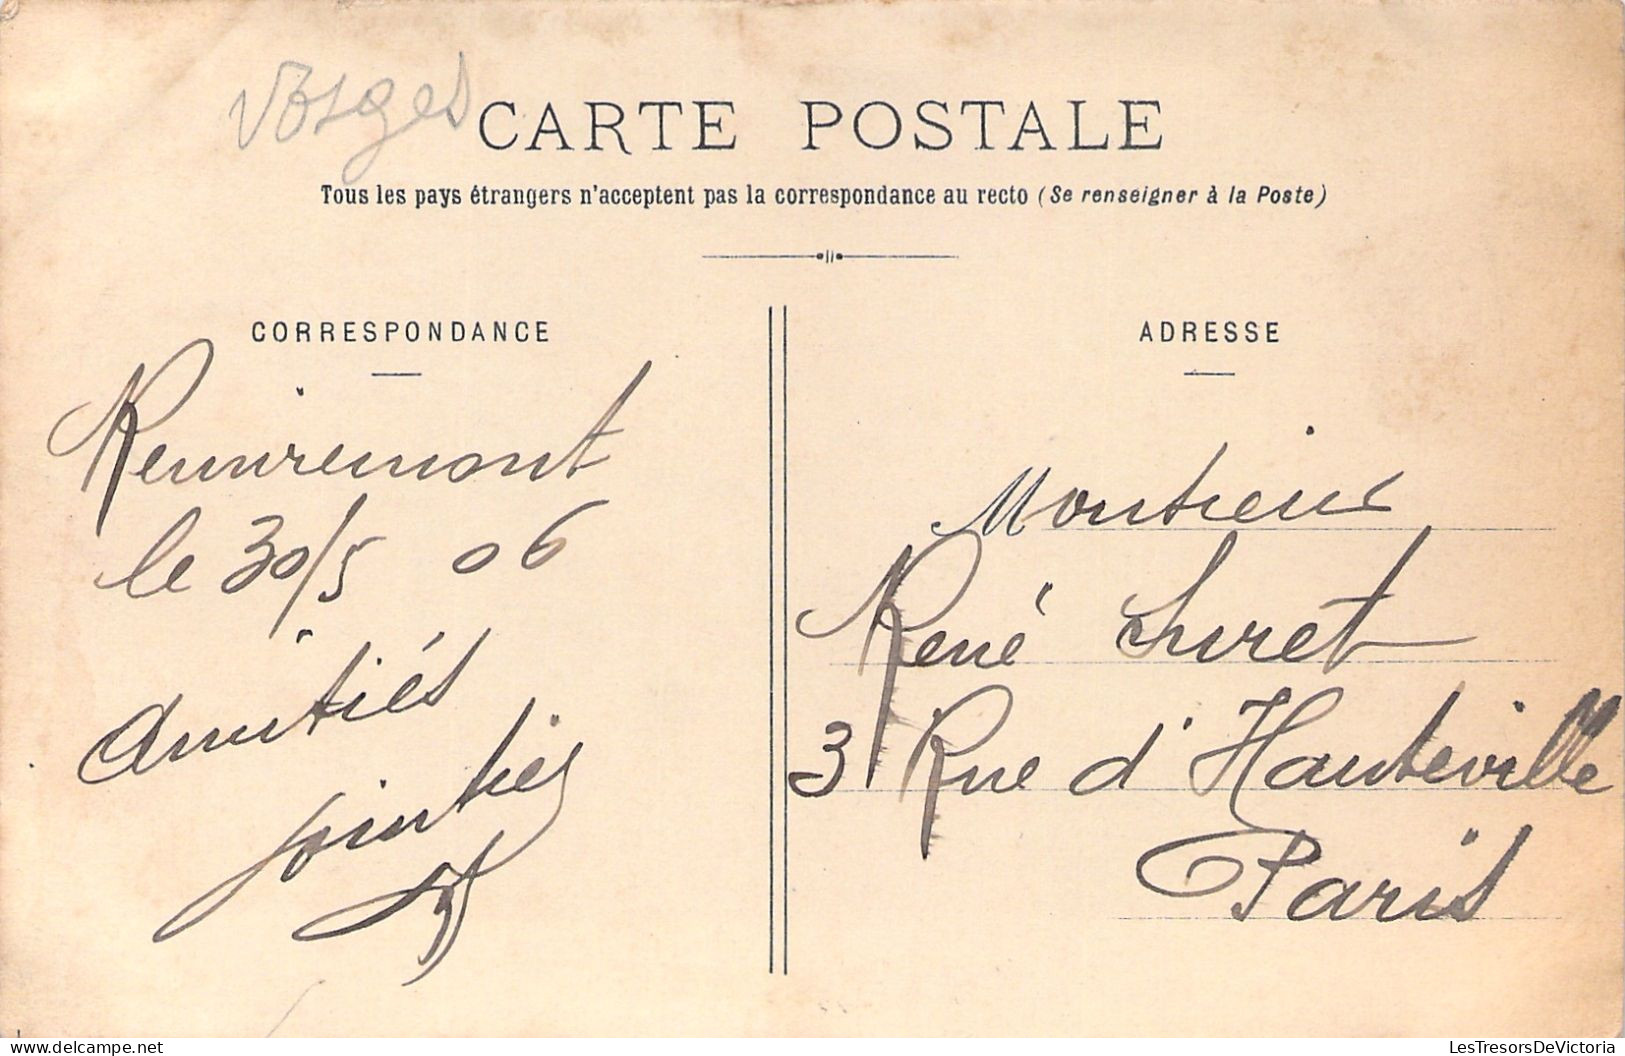 Vosges
CARTE POSTALE
Tous les pays étrangers n'acceptent pas la correspondance au recto (Se renseigner à la Poste)
CORRESPONDANCE
Remiremont
le 30/5 06
Amitiés
ADRESSE
Monsieur
René Luret
3 Rue d'Hauteville
Paris
LesTresorsDeVictoria